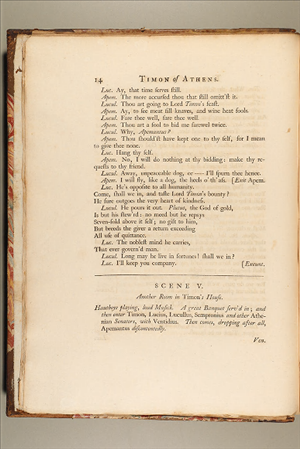 14 TIMON of ATHENS.
Luc. Ay, that time serves still.
Apem. The more accursed thou that still omitt'st it.
Lucul. Thou art going to Lord Timon's feast.
Apem. Ay, to see meat fill knaves, and wine heat fools.
Lucul. Fare thee well, fare thee well.
Apem. Thou art a fool to bid me farewel twice.
Lucul. Why, Apemantus?
Apem. Thou should'st have kept one to thy self, for I mean
to give thee none.
Luc. Hang thy self.
Apem. No, I will do nothing at thy bidding: make thy re-
quests to thy friend.
Lucul. Away, unpeaceable dog, or — I'll spurn thee hence.
Apem. I will fly, like a dog, the heels o' th' ass. [Exit Apem.
Luc. He's opposite to all humanity.
Come, shall we in, and taste Lord Timon's bounty?
He sure outgoes the very heart of kindness.
Lucul. He pours it out. Plutus, the God of gold,
Is but his stew'rd: no meed but he repays
Seven-fold above it self; no gift to him,
But breeds the giver a return exceeding
All use of quittance.
Luc. The noblest mind he carries,
That ever govern'd man.
Lucul. Long may he live in fortunes! shall we in?
Luc. I'll keep you company. [Exeunt.
SCENE V.
Another Room in Timon's House.
Hautboys playing, loud Musick. A great Banquet serv'd in; and
then enter Timon, Lucius, Lucullus, Sempronius and other Athe-
nian Senators, with Ventidius. Then comes, dropping after all,
Apemantus discontentedly.
Ven.